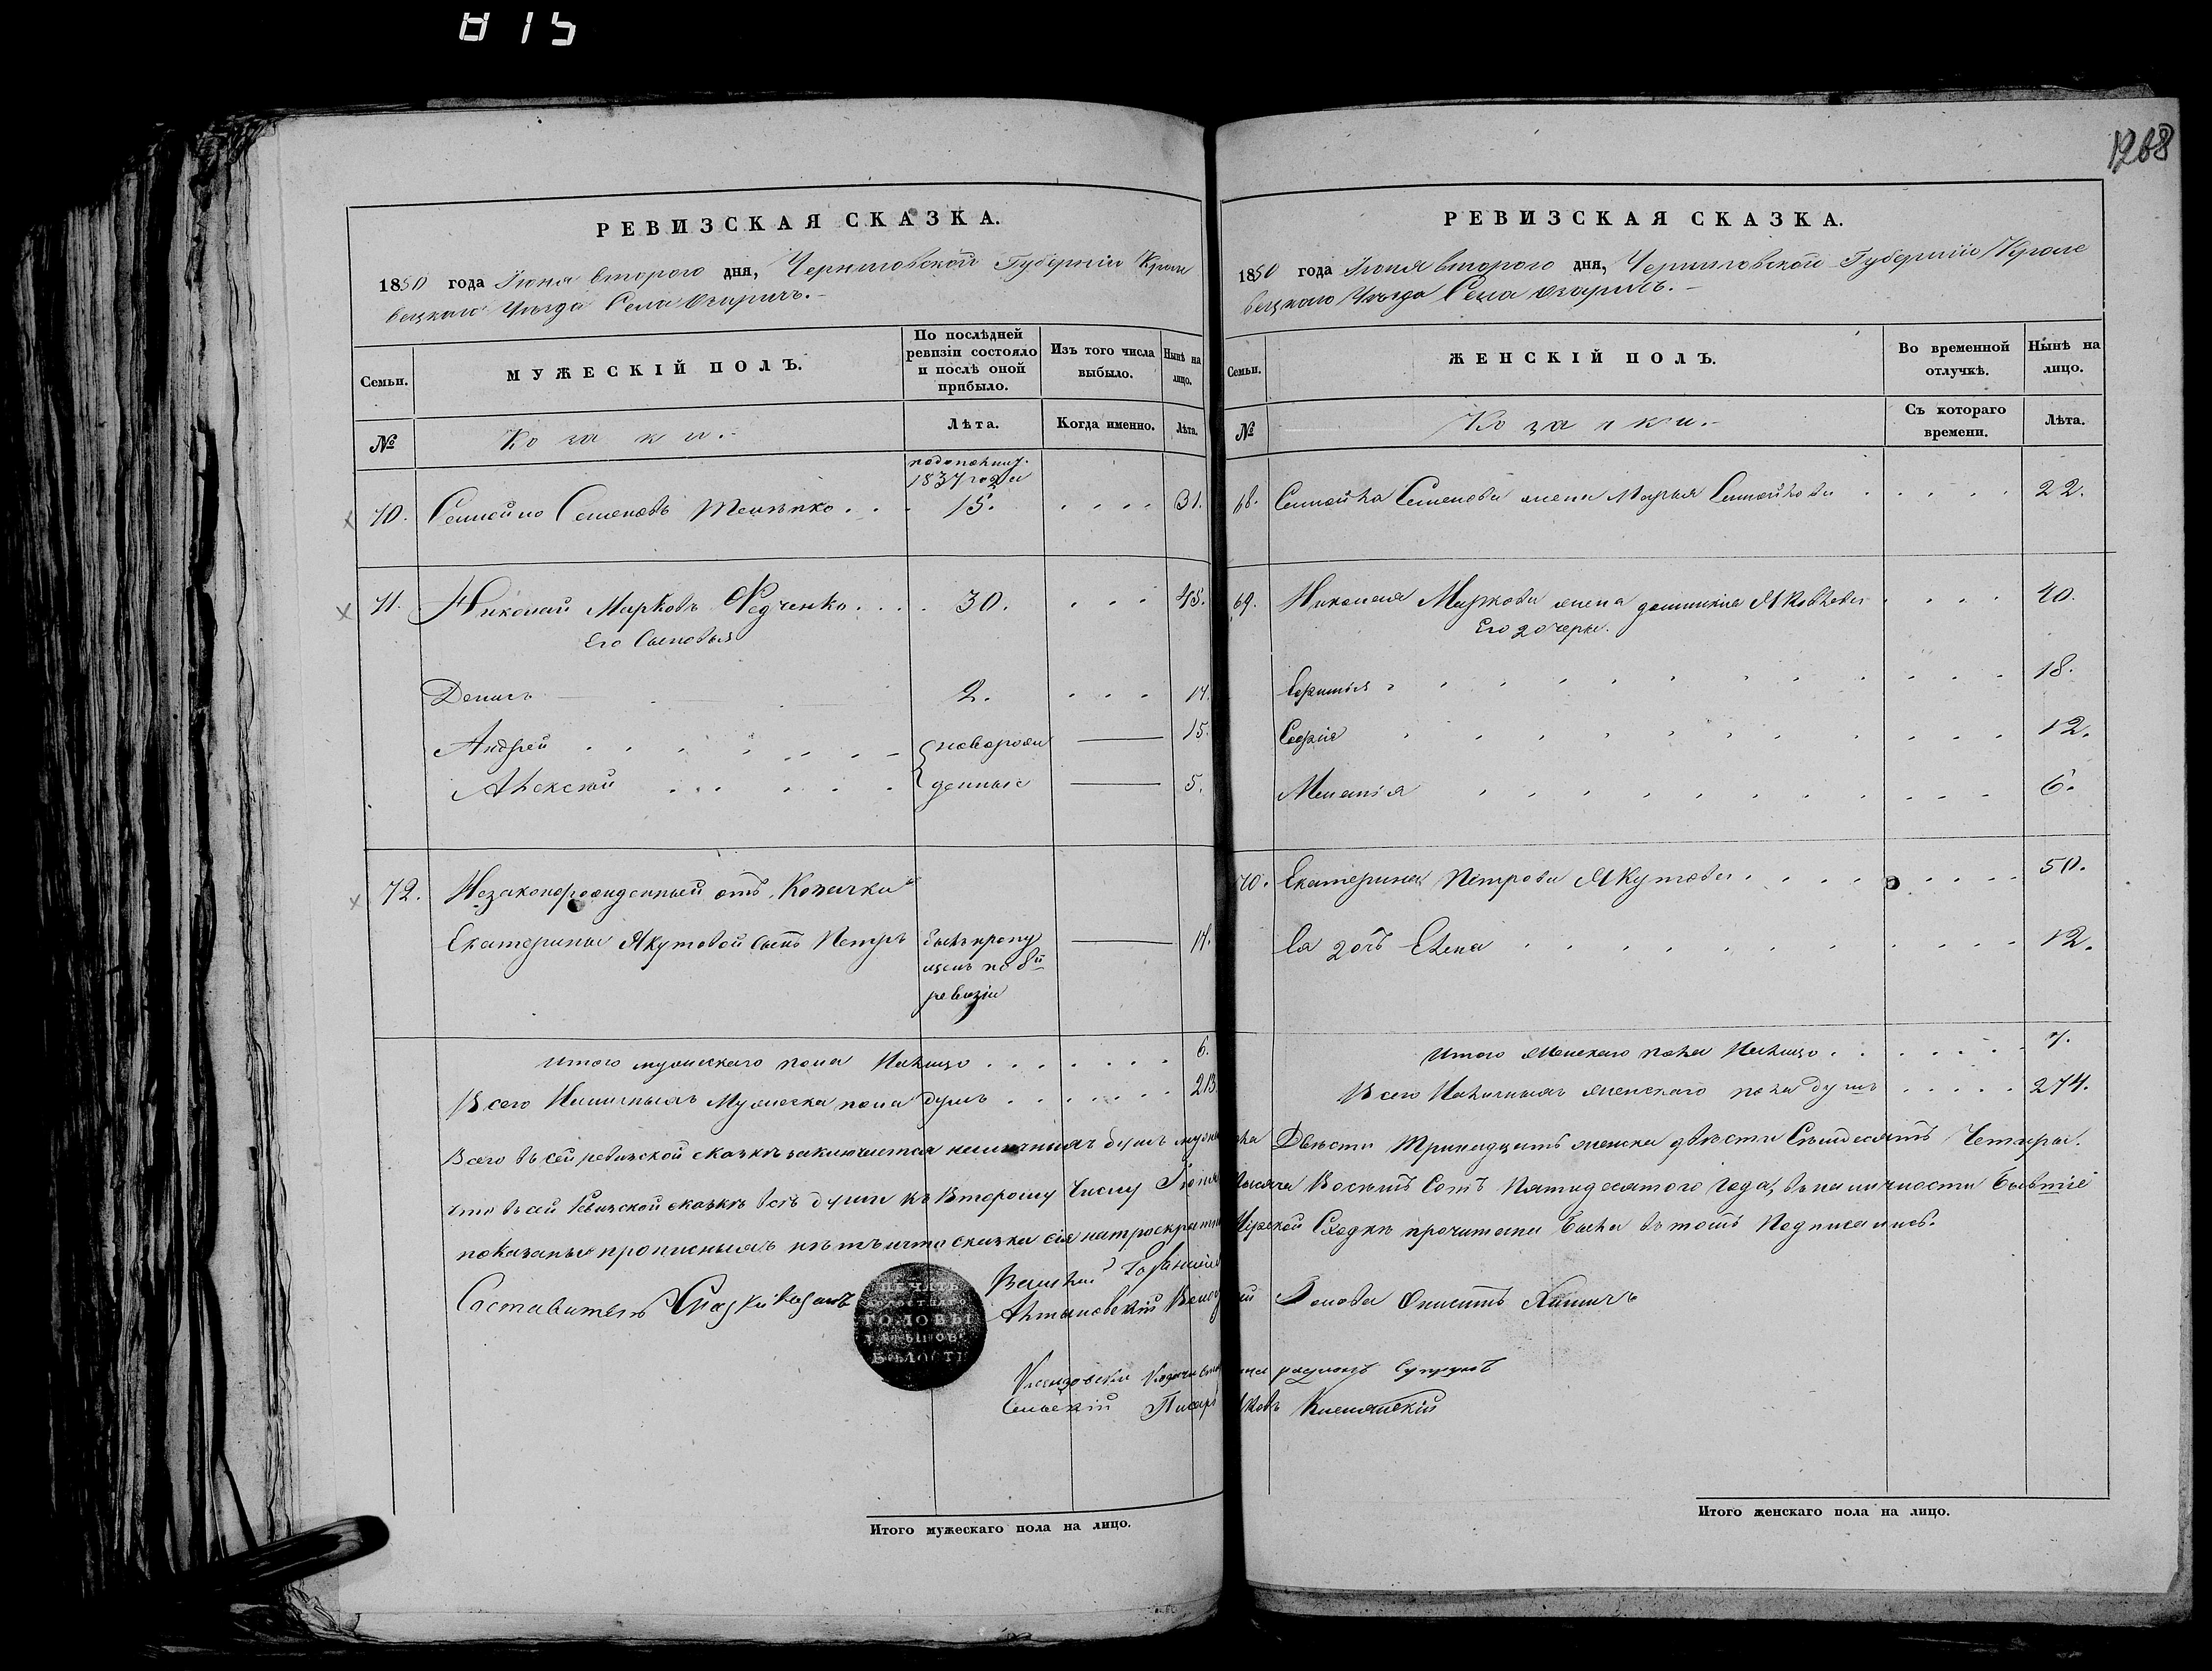 815
1268
РЕВИЗСКАЯ СКАЗКА.
1850 года Іюня второго дня, Черниговской Губерніи Кроле
вецкаго Уѣзда Села Озаричъ.
Семьи.
МУЖЕСКІЙ ПОЛЪ.
По послѣдней ревизіи состояло и послѣ оной прибыло.
Изъ того числа выбыло.
Нынѣ на лицо.
№
Козаки.
Лѣта.
Когда именно.
Лѣта.
1837 года
70. Семенъ Тельпко 15. 31.
71. Николай Марковъ Федченко 30. 45.
Его Сыновья
Денисъ 2. 17.
Андрей новорож 15.
Алексѣй денные 5.
72. Незаконорожденный отъ Козачки
Екатерины Якутовой сынъ Петръ былъ пропу
щенъ по 8й
ревизіи
Итого мужескаго пола Налицо 6.
Всего Наличныхъ Мужеска пола душъ 213
РЕВИЗСКАЯ СКАЗКА.
1850 года Іюня второго дня, Черниговской Губерніи Кроле
вецкаго Уѣзда Села Озаричъ.
Семьи.
ЖЕНСКІЙ ПОЛЪ.
Во временной отлучкѣ.
Нынѣ на лицо.
№
Козачки.
Съ котораго времени.
Лѣта.
68. Семенова жена Марья 22.
69. Николая Маркова жена Яковлева 40.
Его дочери.
18.
Софія 12.
Меланія 6.
70. Екатерина Петрова Якутова 50.
Ея дочь Елена 12.
Итого Женскаго пола Налицо 7.
Всего Наличныхъ женскаго пола душъ 274.
Всего въ сей ревизской сказкѣ заключается наличныхъ душъ мужеска Двѣсти Тринадцать женска двѣсти Семдесятъ Четыре.
что въ сей Ревизской сказкѣ всѣ души къ Второму Числу Іюня тысяча Восемь Сотъ Пятидесятого Года, въ наличности бывшіе
показаны прописныхъ нѣтъ и что сказка сія Мірской Сходкѣ прочитана была въ томъ Подписались.
Составитель
ПЕЧАТЬ
ГОЛОВЫ
ВОЛОСТИ
Алтыновскій Волостной Голова
Сельскій Писарь
Итого мужескаго пола на лицо.
Итого женскаго пола на лицо.